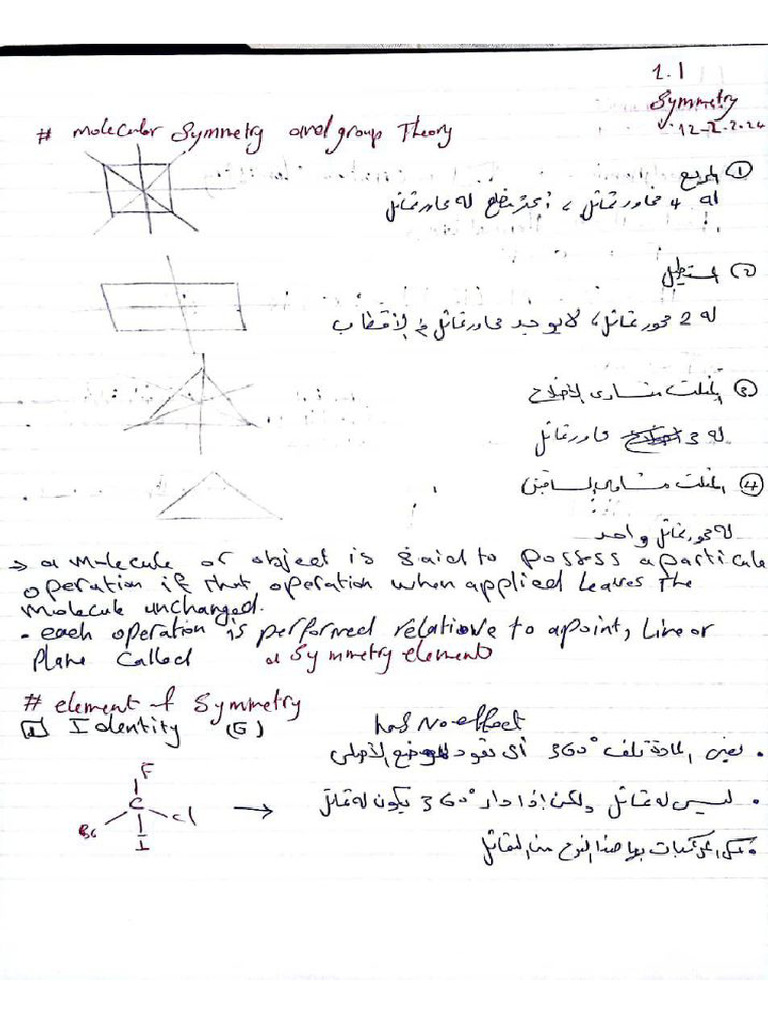 1.1
Symmetry
12-2-2024
# molecular Symmetry and group Theory
① المربع
له 4 محاور تماثل ،
② المستطيل
له 2 محور تماثل، لا يوجد محاور تماثل في الأقطاب
③ المثلث متساوى الأضلاع
له 3 محاور تماثل
④ المثلث متساوى الساقين
له محور تماثل واحد
→ a molecule or object is said to possess a particule
operation if that operation when applied leaves the
molecule unchanged.
• each operation is performed relative to a point, Line or
Plane Called a symmetry elements
# element of Symmetry
1 Identity (E) has No effect
• يعنى المادة تلف 360° أى تعود للموضع الأصلى
F
C
Br Cl
I
→
• ليس له تماثل ولكن إذا دار 360° يكون له تماثل
كل المركبات بها هذا النوع من التماثل